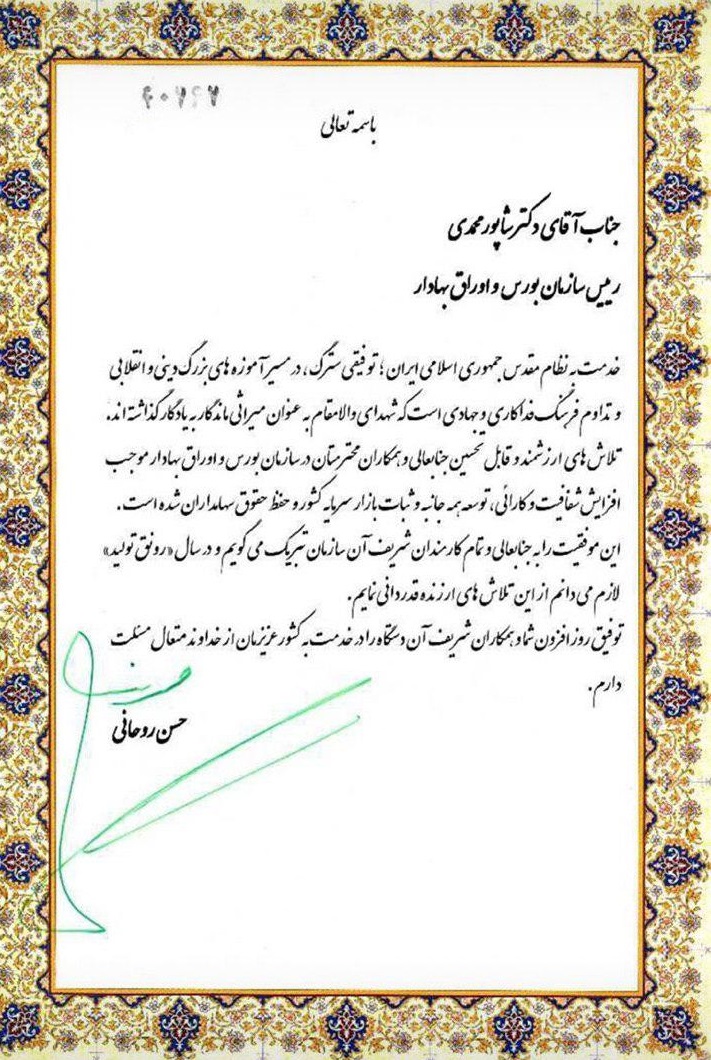 باسمه تعالی
جناب آقای دکتر شاپور محمدی
رییس سازمان بورس و اوراق بهادار
خدمت به نظام مقدس جمهوری اسلامی ایران؛ توفیقی سترگ، در مسیر آموزه های بزرگ دینی و انقلابی
و تداوم فرهنگ فداکاری و جهادی است که شهدای والامقام به عنوان میراثی ماندگار به یادگار گذاشته اند.
تلاش های ارزشمند و قابل تحسین جنابعالی و همکاران محترمتان در سازمان بورس و اوراق بهادار موجب
افزایش شفافیت و کارائی، توسعه همه جانبه و ثبات بازار سرمایه کشور و حفظ حقوق سهامداران شده است.
این موفقیت را به جنابعالی و تمام کارمندان شریف آن سازمان تبریک می گویم و در سال «رونق تولید»
لازم می دانم از این تلاش های ارزنده قدردانی نمایم.
توفیق روزافزون شما و همکاران شریف آن دستگاه را در خدمت به کشور عزیزمان از خداوند متعال مسئلت
دارم.
حسن روحانی